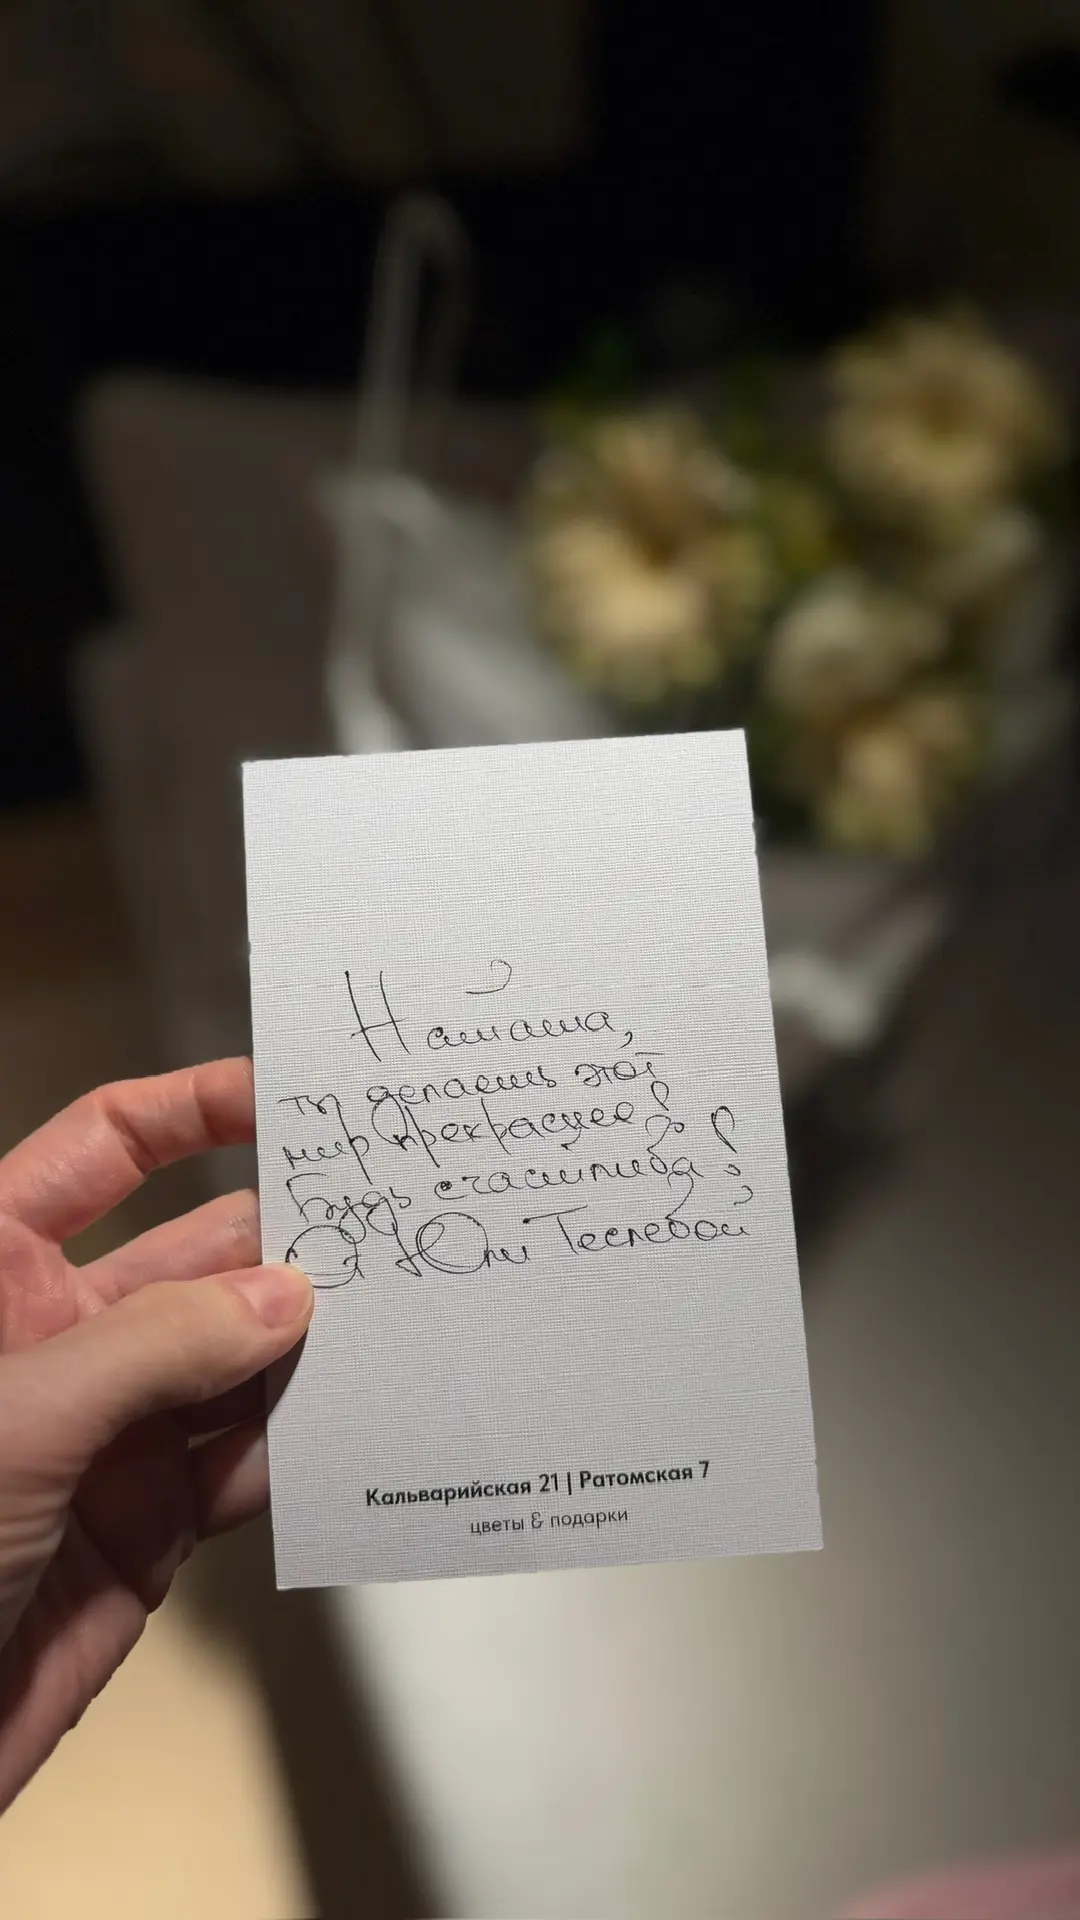 Наташа,
ты делаешь этот
мир прекраснее!
Будь счастлива!
От Юли Теслевой
Кальварийская 21 | Ратомская 7
цветы & подарки